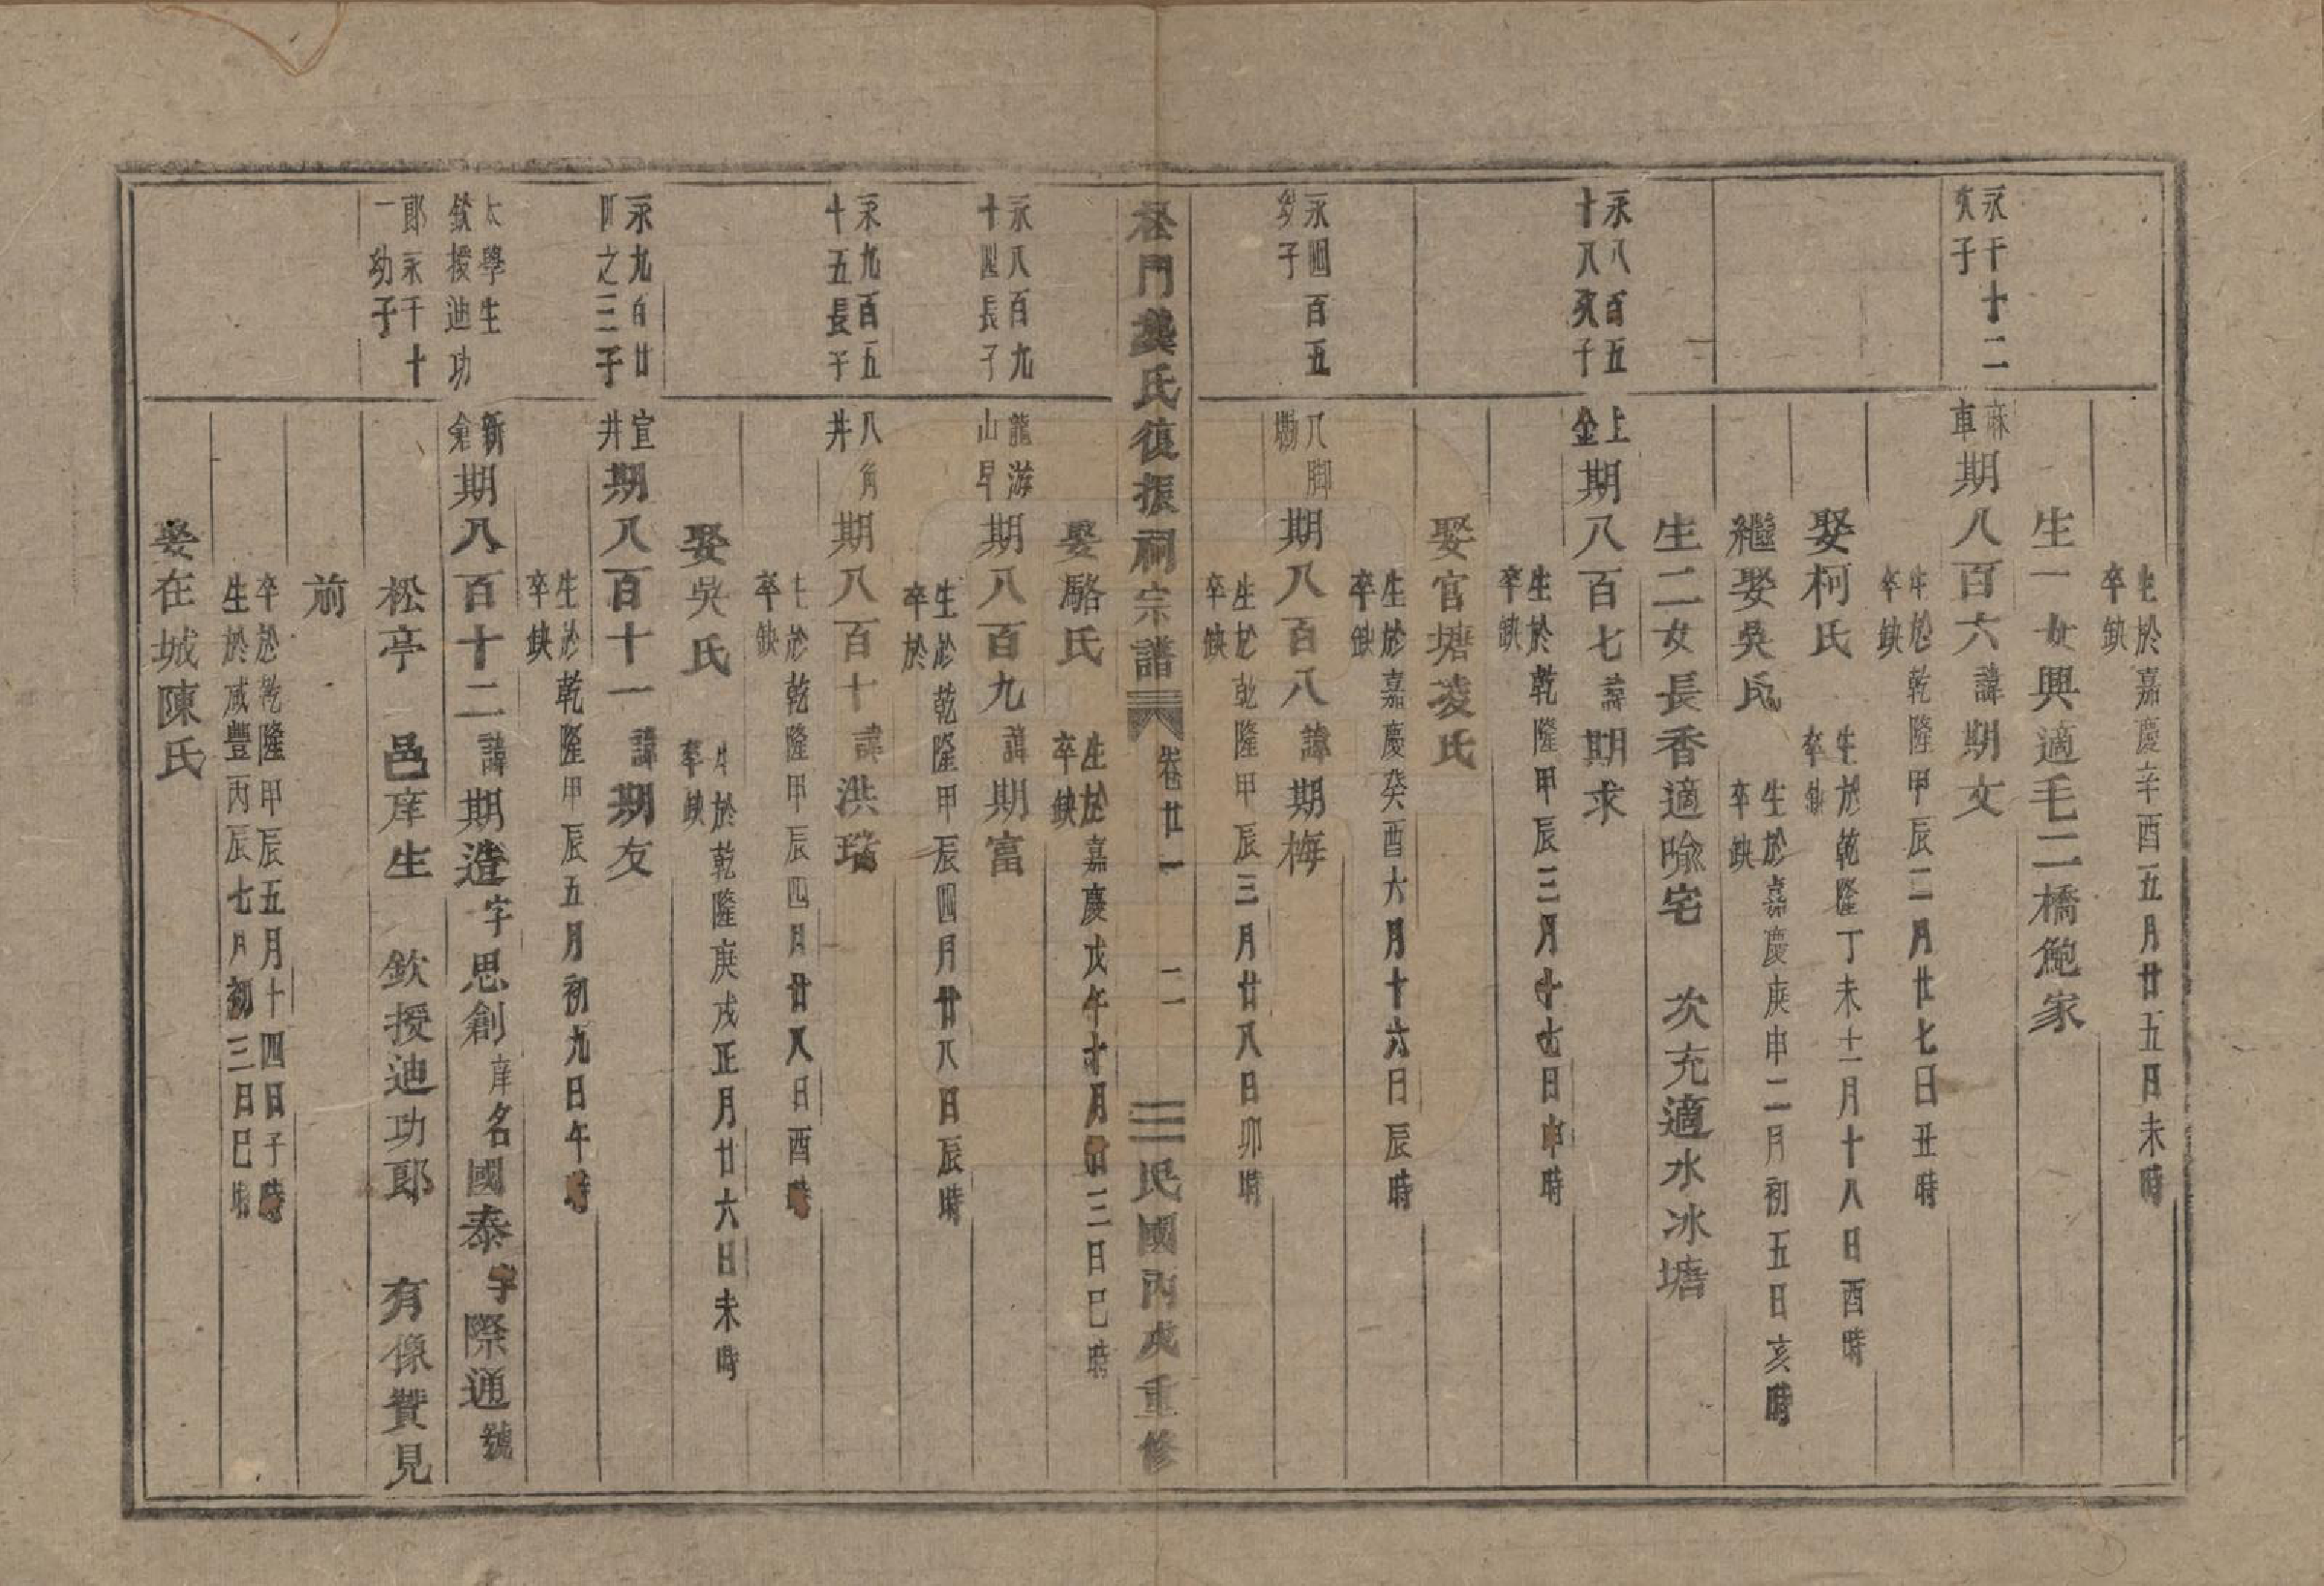 生於嘉慶辛酉五月廿五日未時
卒缺
生一女興適毛二橋鮑家
永千十二
次子
麻車
期八百六諱期文
生於乾隆甲辰二月廿七日丑時
卒缺
娶柯氏
生於乾隆丁未十二月十八日酉時
卒缺
繼娶吳氏
生於嘉慶庚申二月初五日亥時
卒缺
生二女長香適隃宅 次充適水冰塘
永八百五
十八次子
上金
期八百七諱期求
生於乾隆甲辰三月十七日申時
卒缺
娶官塘凌氏
生於嘉慶癸酉六月十六日辰時
卒缺
永四百五
幼子
八脚塢
期八百八諱期梅
生於乾隆甲辰三月廿八日卯時
卒缺
松門龔氏復振祠宗譜 卷廿一 二 民國丙戌重修
娶駱氏
生於嘉慶戊午十月廿三日巳時
卒缺
永八百九
十四長子
龍游
山早
期八百九諱期富
生於乾隆甲辰四月廿八日辰時
卒於
永九百五
十五長子
八角井
期八百十諱洪瑞
生於乾隆甲辰四月廿八日酉時
卒缺
娶吳氏
生於乾隆庚戌正月廿六日未時
卒缺
永九百廿
四之三子
宣井
期八百十一諱期友
生於乾隆甲辰五月初九日午時
卒缺
太學生
欽授迪功
郎永千十
一幼子
新倉
期八百十二諱期造字思創庠名國泰字際通號
松亭 邑庠生 欽授迪功郎 有像贊見
前
生於乾隆甲辰五月十四日子時
卒於咸豐丙辰七月初三日巳時
娶在城陳氏